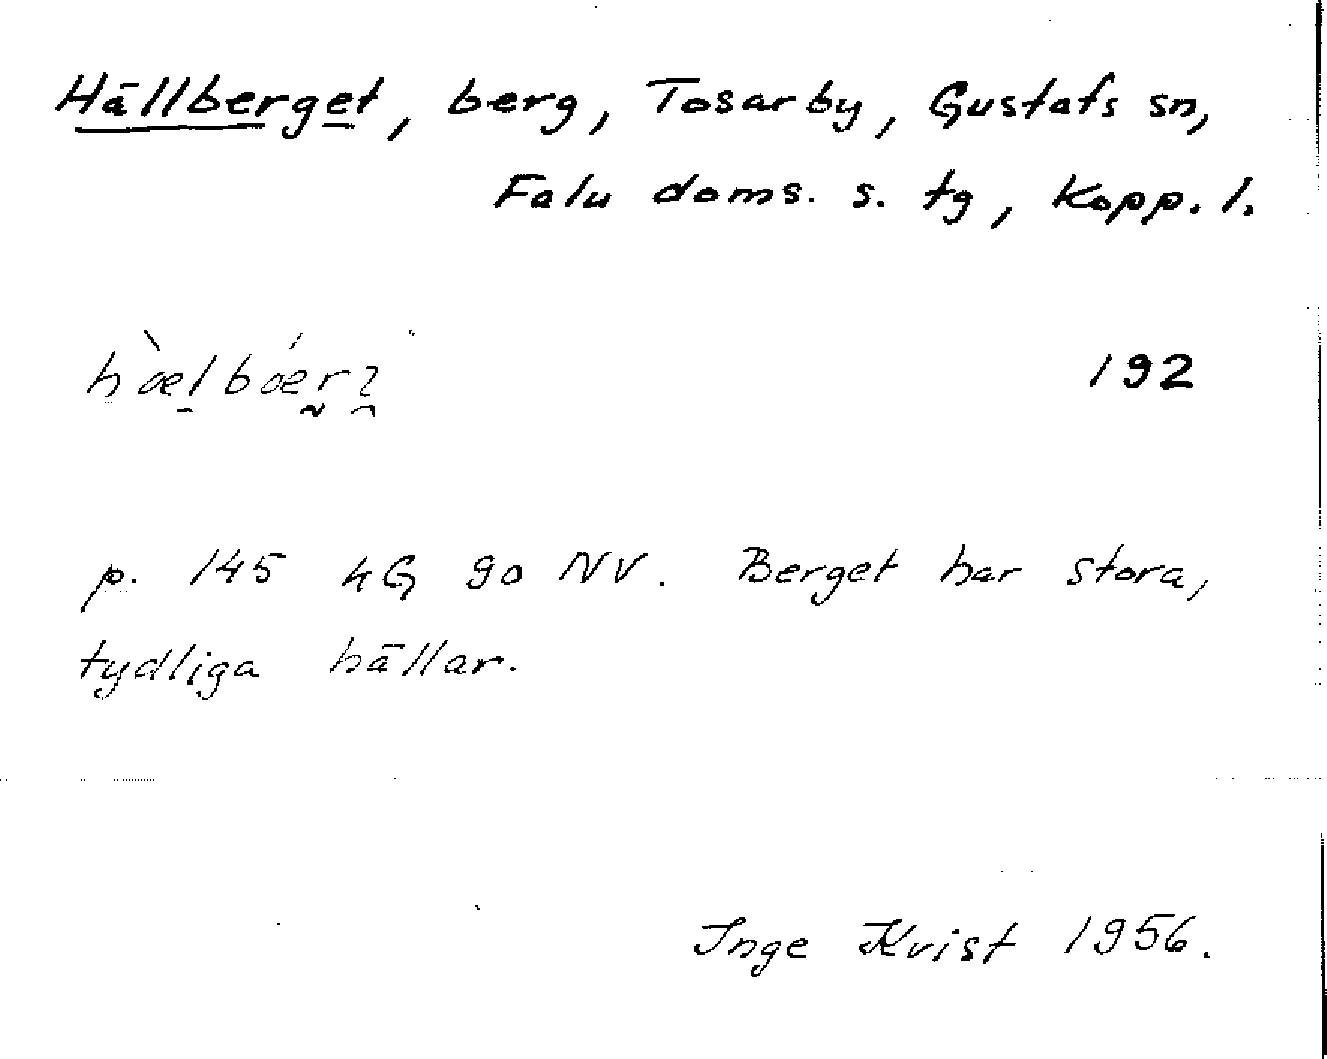 Hällberget, berg, Tosarby, Gustafs sn,
Falu doms. s. tg, Kopp. l.
192
p. 145 4G 90 NV. Berget har stora,
tydliga hällar.
Inge Kvist 1956.